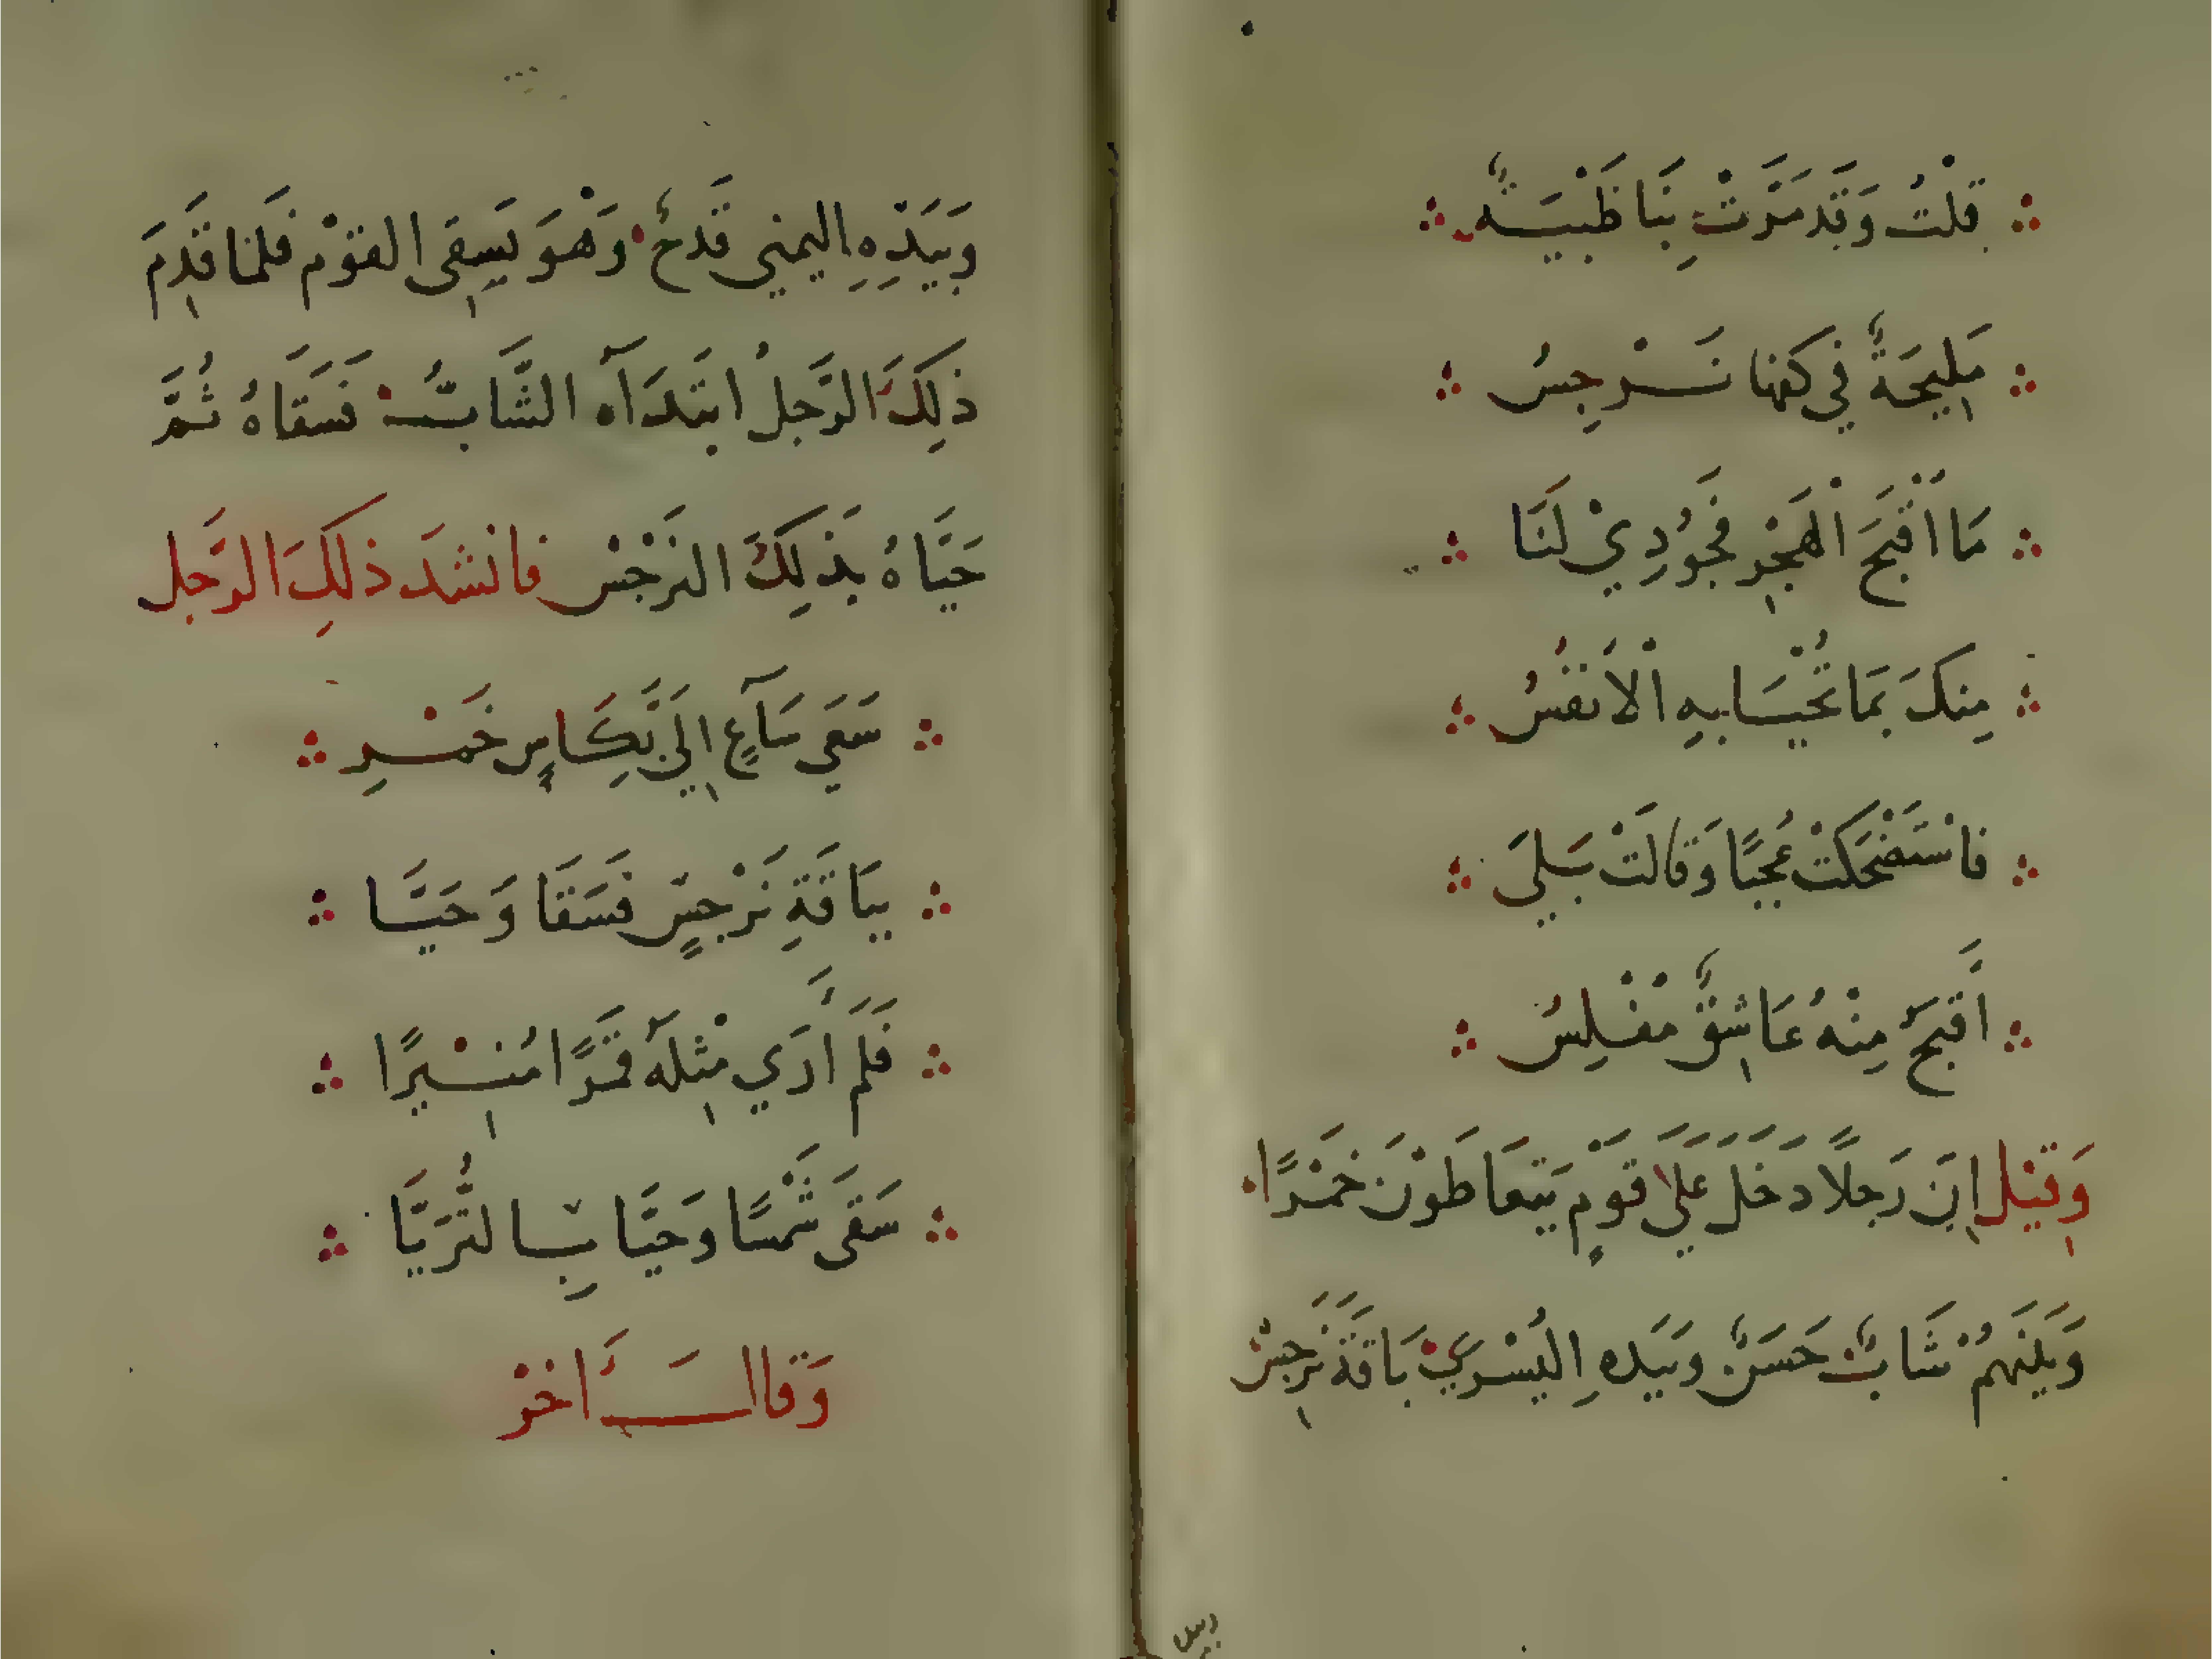 قلْتُ وَقَد مَرَّتْ بِنَا ظَبْيَةٌ
مَلِيحَةٌ في كفها نَرْجِسُ
مَا اَقْبَحَ الْهَجْرِ فَجُودِيْ لَنَا
مِنكَ بمَا تُحْيَا بهِ الْاَنفُسُ
فَاسْتَضْحَكَتْ عُجْبًا وَقَالَتْ بَلِيَ
اَقبَحُ مِنْهُ عَاشِقٌ مُفْلِسُ
وَقِيْلَ اِنَ رَجلًا دَخَلَ عَلَى قَوْمٍ يَتَعَاطَوْنَ خَمْرًا
وَبَيْنَهمُ شَابٌ حَسَنٌ وَبيَدهِ اليُسْرَيْ بَاقَة نَرجِسْ
وَبِيَدِهِ اليمني قَدحٌ وَهْوَ يَسِقى القوْم فَلما قَدِمَ
ذلِكَ الرَّجلُ ابتَدَآه الشَّابُّ فَسَقَاهُ ثُمَّ
حَيَّاهُ بذَلِكَ النَرْجْس فانشدَ ذَلِكَ الرَّجل
سَعَي سَاعٍ اِلَيَّ بِكَاسٍ خَمْرِ
ببَاقَةِ نَرْجسٍ فَسَقَا وَحَيَّا
فَلَم أَرَي مْثِلهَ قَمَرًا مُنِيرًا
سَقَى شَمْسًا وَحَيَّا بِالثُّرَيَّا
وَقال اَخرْ